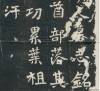 志銘
首部落其
功累葉祖
汗